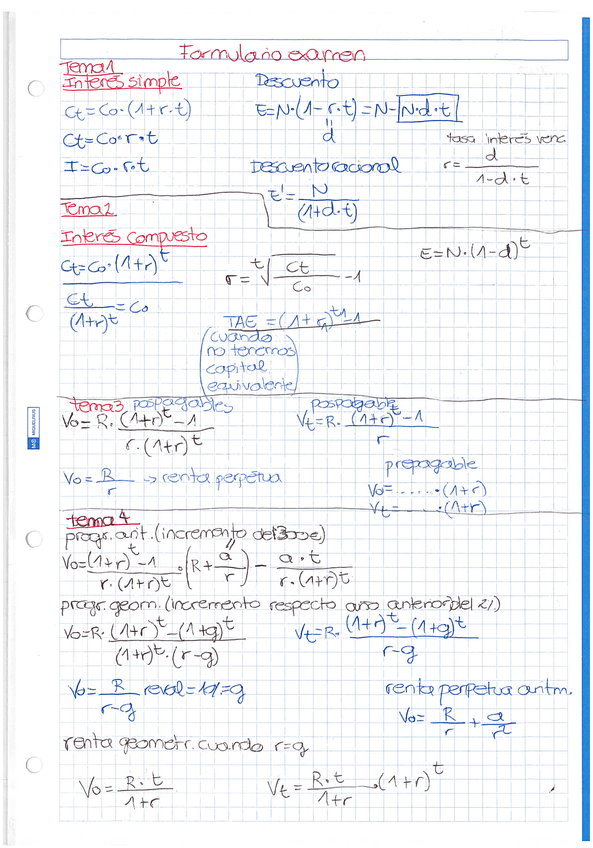 Formulario examen
Tema 1
Interés simple
Ct = Co · (1 + r · t)
Ct = Co · r · t
I = Co · r · t
Descuento
E = N · (1 - r · t) = N - N · d · t
d
Descuento racional
E' = N / (1 + d · t)
tasa interés venc.
r = d / 1 - d · t
Tema 2
Interés compuesto
Ct = Co · (1 + r)^t
Ct / (1 + r)^t = Co
r = t√(Ct / Co) - 1
E = N · (1 - d)^t
TAE = (1 + r)^t - 1
(cuando
no tenemos
capital
equivalente)
tema 3 pospagables
Vo = R · (1 + r)^t - 1 / r · (1 + r)^t
pospagable
Vt = R · (1 + r)^t - 1 / r
Vo = R / r → renta perpetua
prepagable
Vo = ...... · (1 + r)
Vt = ...... · (1 + r)
tema 4
progr. arit. (incremento de 300€)
Vo = (1 + r)^t - 1 / r · (1 + r)^t · (R + a / r) - a · t / r · (1 + r)^t
progr. geom. (incremento respecto año anterior del 2%)
Vo = R · (1 + r)^t - (1 + g)^t / (1 + r)^t · (r - g)
Vt = R · (1 + r)^t - (1 + g)^t / r - g
Vo = R / r - g reval = 1% = g
renta perpetua aritm.
Vo = R / r + a / r²
renta geometr. cuando r = g
Vo = R · t / 1 + r
Vt = R · t / 1 + r · (1 + r)^t
MIQUELRIUS